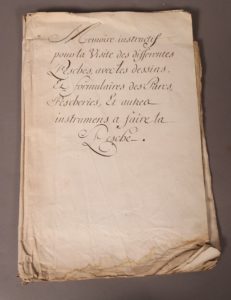 Memoire instructif
pour la Visite des differentes
Pesches, avec les dessins.
Et formulaires des Parcs,
Pescheries, Et autres
instrumens a faire la
Pesche.